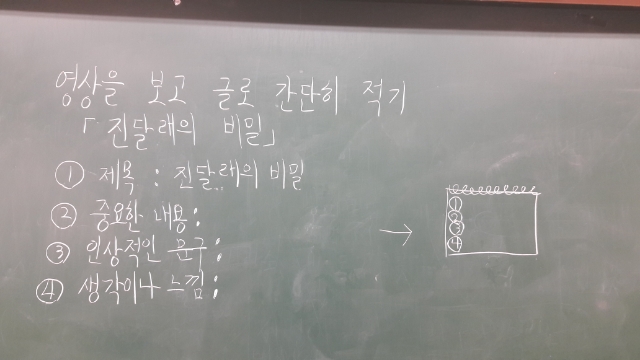 영상을 보고 글로 간단히 적기
「진달래의 비밀」
① 제목 : 진달래의 비밀
② 중요한 내용 :
③ 인상적인 문구 :
④ 생각이나 느낌 :
→
①
②
③
④